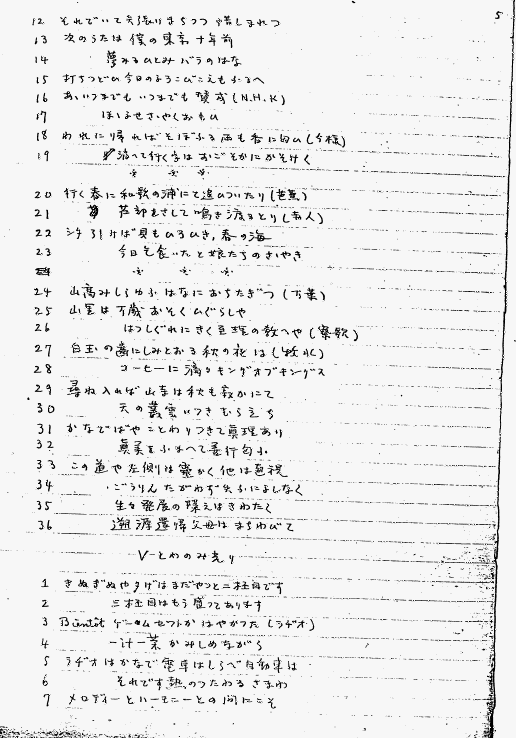 5
12 それでいて矢張りまちつつ惜しまれつ
13 次のうたは僕の東京十年前
14 夢みるひとみバラのはな
15 打ちつどひ今日のよろこびこえもふるへ
16 あいつまでもいつまでも賛成(N.H.K)
17 ほほよせささやくおもひ
18 われに帰ればそぼふる雨も香に匂ひ(今様)
19 消へて行く字はおごそかにかそけく
※ ※ ※
20 行く春に和歌の浦にて追ひついたり(芭蕉)
21 芦部をさして鳴き渡るとり(赤人)
22 引けば貝もひろひき,春の海
23 今日を食いたと娘たちのささやき
※ ※ ※
24 山高みしらゆふはなにおちたぎつ(万葉)
25 山里は万歳おそくひぐらしや
26 はつしぐれにきく真理の教へや(寮歌)
27 白玉の歯にしみとおる秋の夜は(牧水)
28 コーヒーに滴々キングオブキングス
29 尋ね入れば山寺は秋も静かにて
30 天の叢雲いつきむらたち
31 かなでばやことわりつきて真理あり
32 真美をふまへて善行匂ふ
33 この道や左側は霊かく他は直視
34 ごうりんたがわず失ふによしなく
35 生々発展の栄えはきわたく
36 遡源還帰父母はまちわびて
V-とわのみ光り
1 きぬぎぬや夕げはまだやっと二杯目です
2 三杯目はもう盛ってあります
3 Bientôt ゲームセットかはやかった(ラヂオ)
4 一汁一菜かみしめながら
5 ラヂオはかなで電車はしらべ自動車は
6 それです熱のつたわるさまわ
7 メロディーとハーモニーとの間にこそ